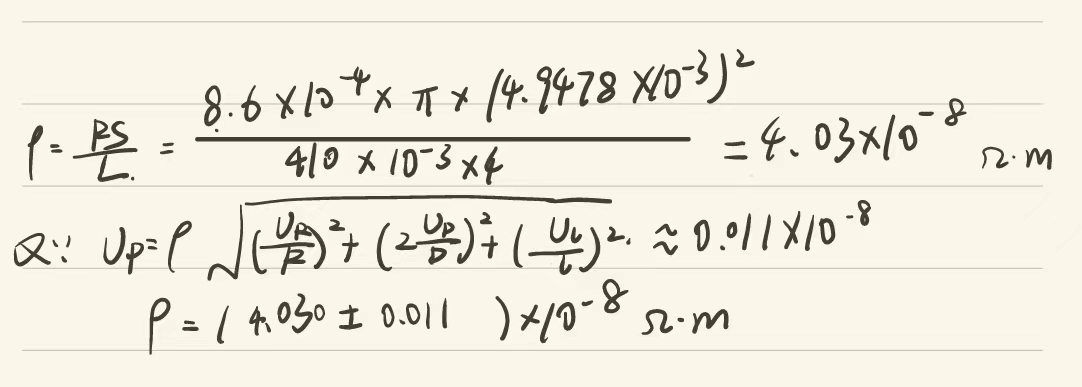 ρ = RS/L. = 8.6 × 10⁻⁴ × π × (4.9478 × 10⁻³)² / 410 × 10⁻³ × 4 = 4.03 × 10⁻⁸ Ω·m
又∵ Uρ = ρ √(U_R/R)² + (2 U_D/D)² + (U_L/L)². ≈ 0.011 × 10⁻⁸
ρ = (4.030 ± 0.011 ) × 10⁻⁸ Ω·m